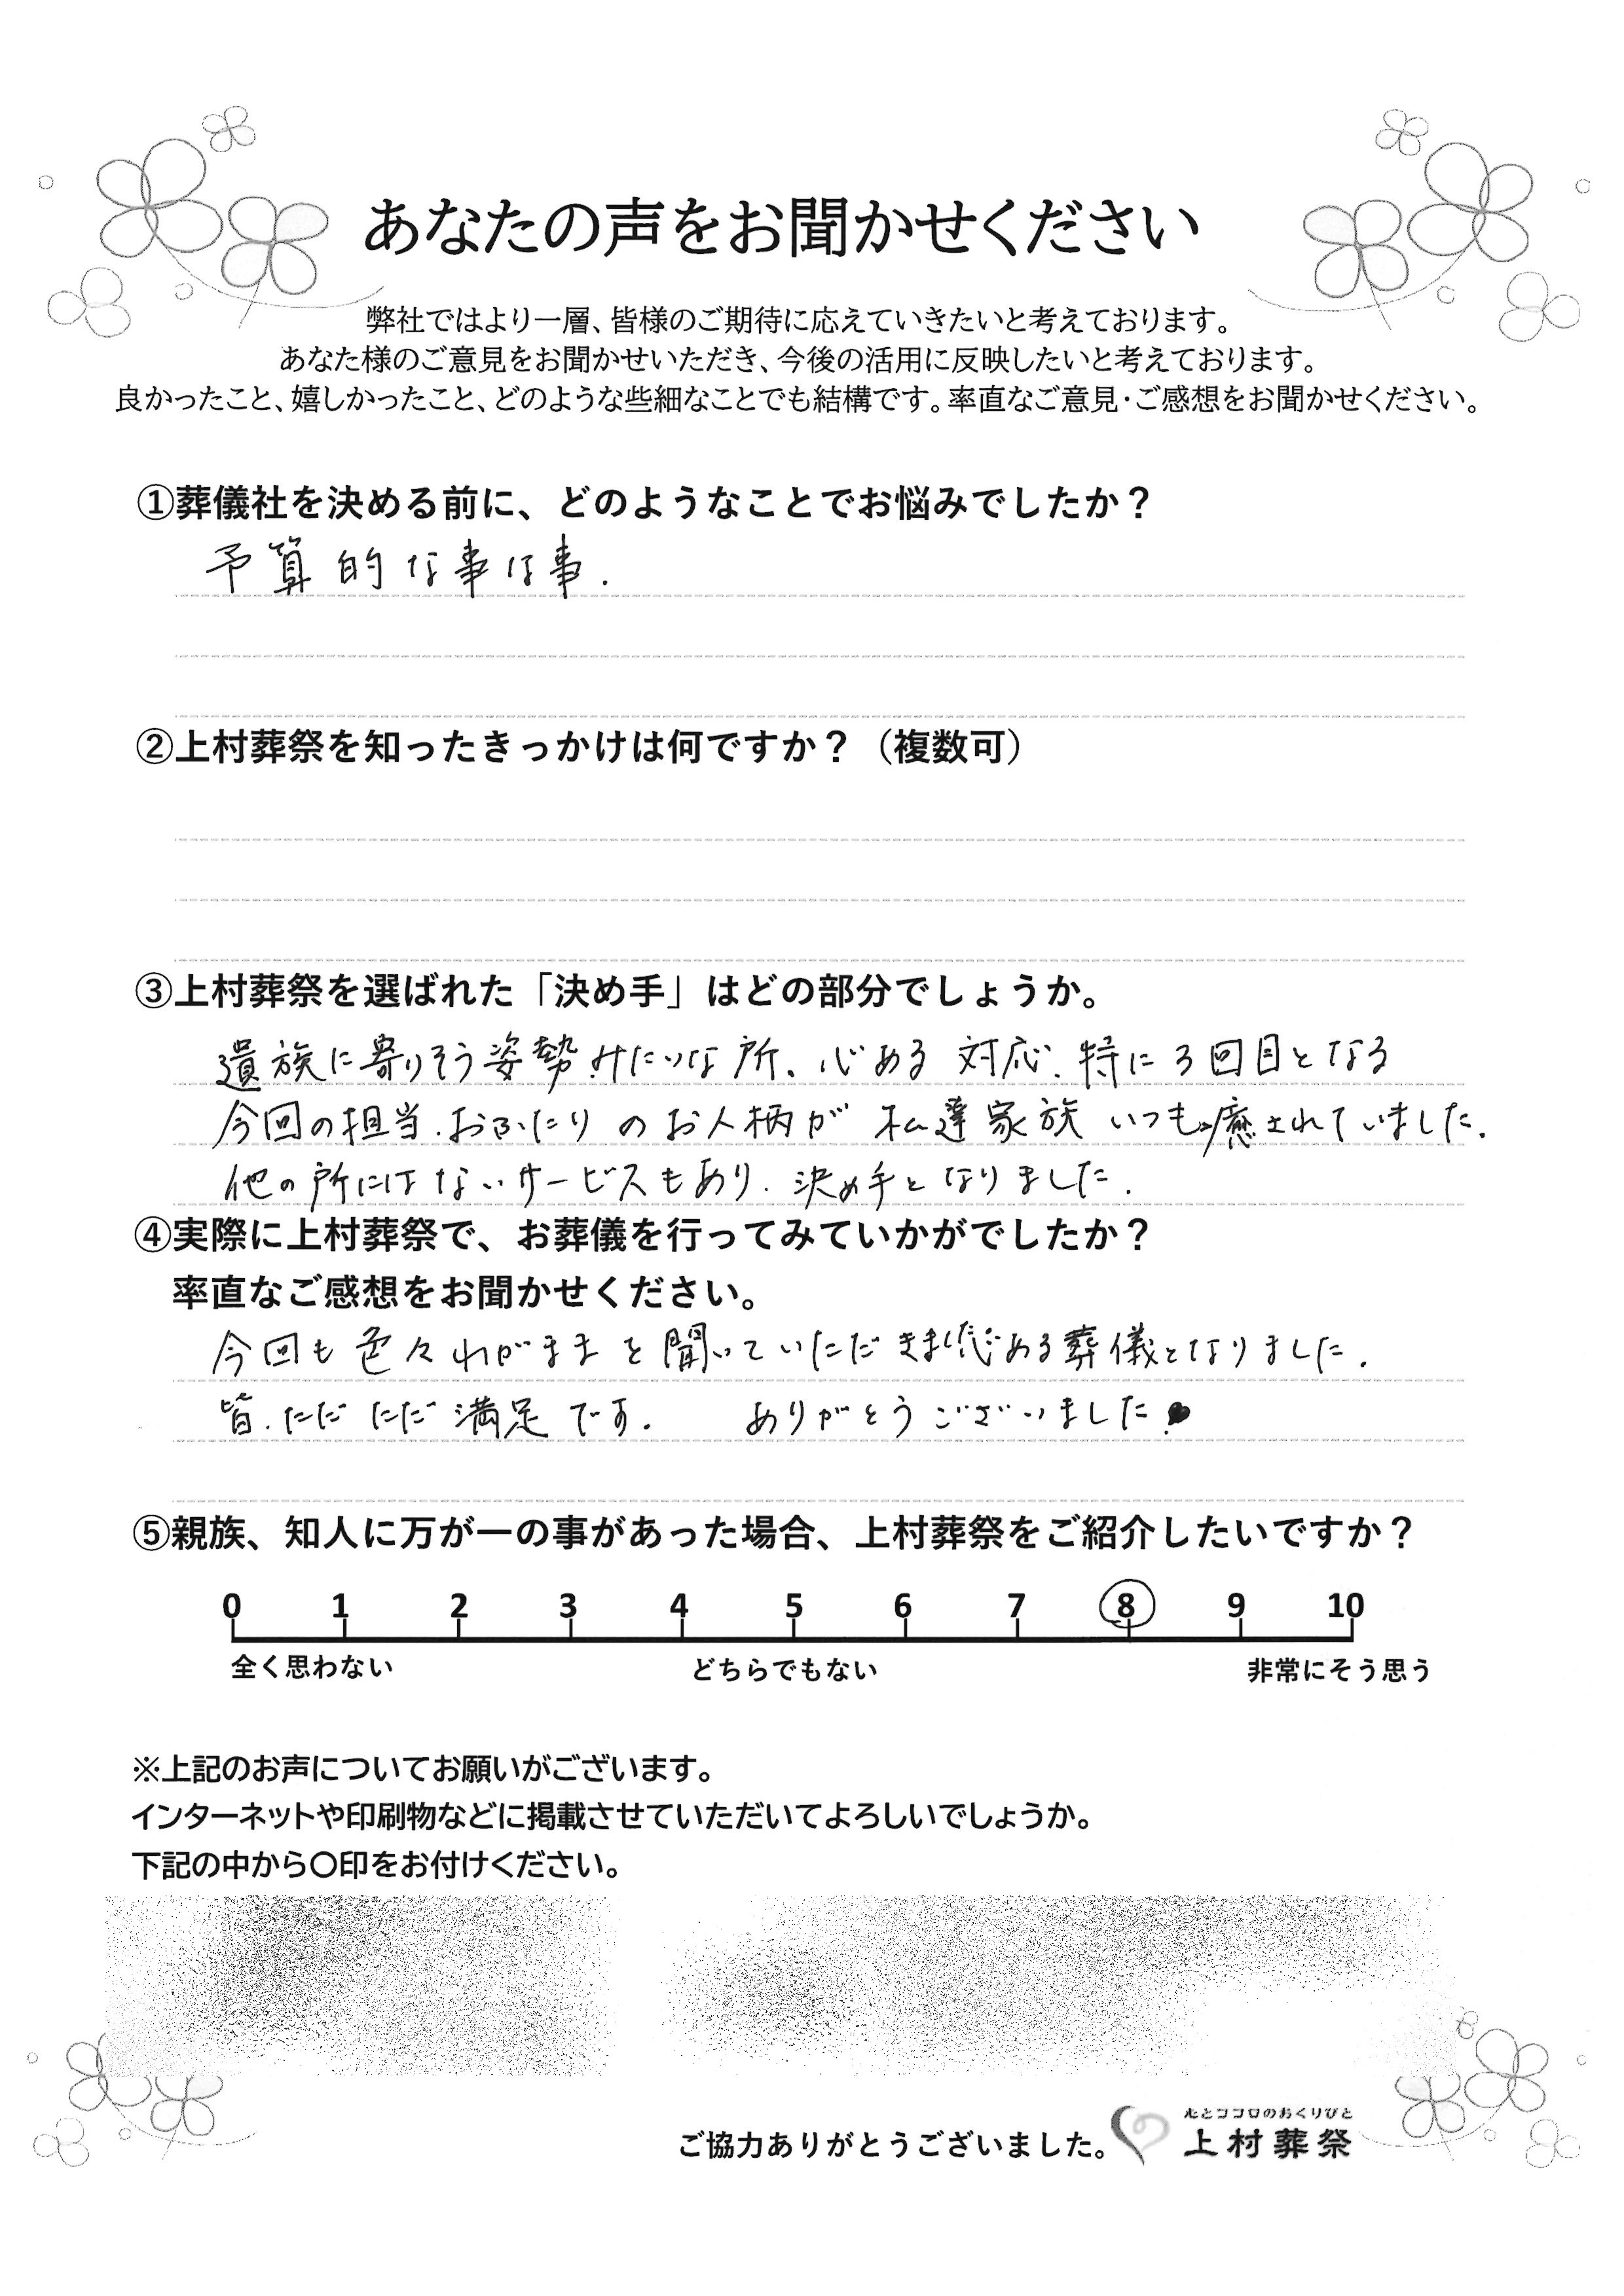 あなたの声をお聞かせください
弊社ではより一層、皆様のご期待に応えていきたいと考えております。
あなた様のご意見をお聞かせいただき、今後の活用に反映したいと考えております。
良かったこと、嬉しかったこと、どのような些細なことでも結構です。率直なご意見・ご感想をお聞かせください。
①葬儀社を決める前に、どのようなことでお悩みでしたか？
予算的な事は事.
②上村葬祭を知ったきっかけは何ですか？（複数可）
③上村葬祭を選ばれた「決め手」はどの部分でしょうか。
遺族に寄りそう姿勢みたいな所、心ある対応.特に3回目となる
今回の担当.おふたりのお人柄が私達家族いつも癒されていました.
他の所にはないサービスもあり.決め手となりました.
④実際に上村葬祭で、お葬儀を行ってみていかがでしたか？
率直なご感想をお聞かせください。
今回も色々わがままを聞いていただきました心ある葬儀となりました.
皆.ただただ満足です. ありがとうございました
⑤親族、知人に万が一の事があった場合、上村葬祭をご紹介したいですか？
0 1 2 3 4 5 6 7 8 9 10
全く思わない どちらでもない 非常にそう思う
※上記のお声についてお願いがございます。
インターネットや印刷物などに掲載させていただいてよろしいでしょうか。
下記の中から〇印をお付けください。
心とココロのおくりびと
ご協力ありがとうございました。 上村葬祭